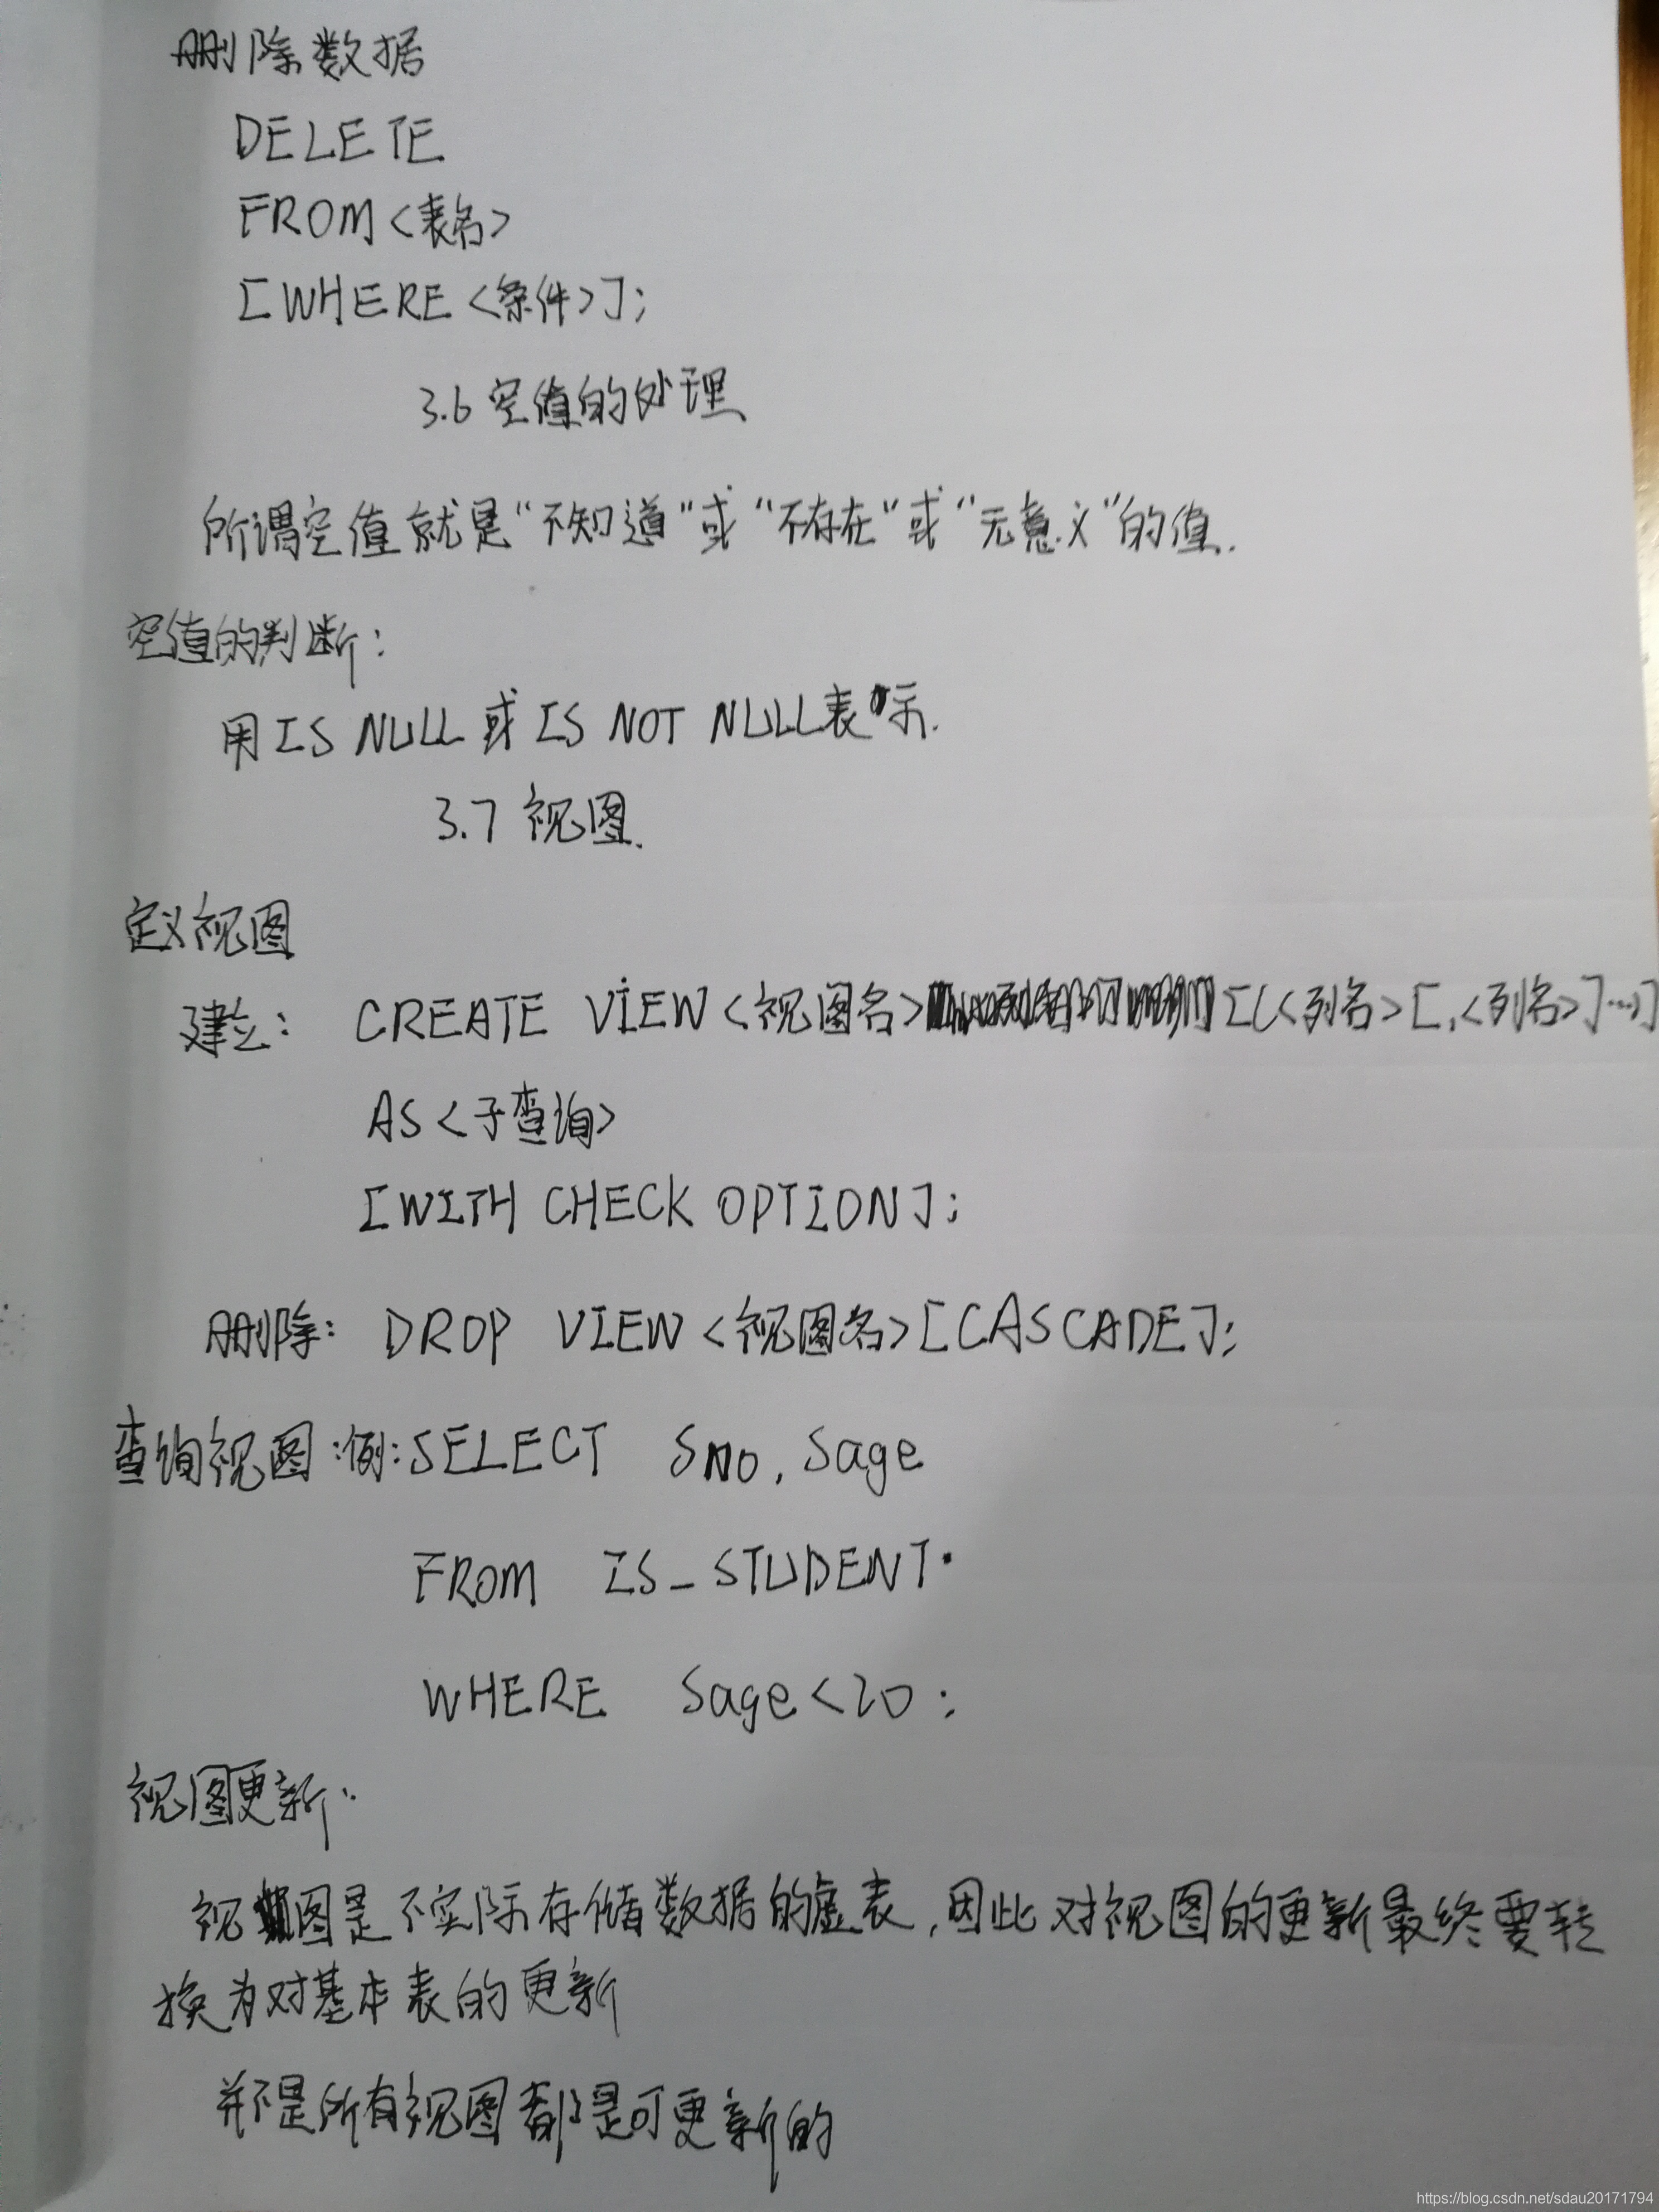 删除数据
DELETE
FROM <表名>
[WHERE <条件>];
3.6 空值的处理
所谓空值就是“不知道”或“不存在”或“无意义”的值.
空值的判断:
用IS NULL 或 IS NOT NULL表示.
3.7 视图.
定义视图
建立: CREATE VIEW <视图名> [(<列名>[,<列名>]…)]
AS <子查询>
[WITH CHECK OPTION];
删除: DROP VIEW <视图名>[CASCADE];
查询视图:例:SELECT Sno, Sage
FROM IS_STUDENT
WHERE Sage<20;
视图更新:
视图是不实际存储数据的虚表,因此对视图的更新最终要转
换为对基本表的更新
并不是所有视图都是可更新的
https://blog.csdn.net/sdau20171794